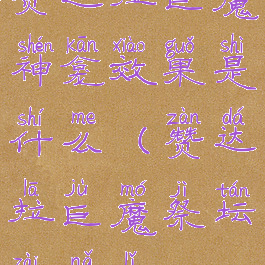 赞达拉巨魔
shén kān xiào guǒ shì
神龛效果是
shí me zàn dá
什么（赞达
lā jù mó jì tán
拉巨魔祭坛
zài nǎ lǐ